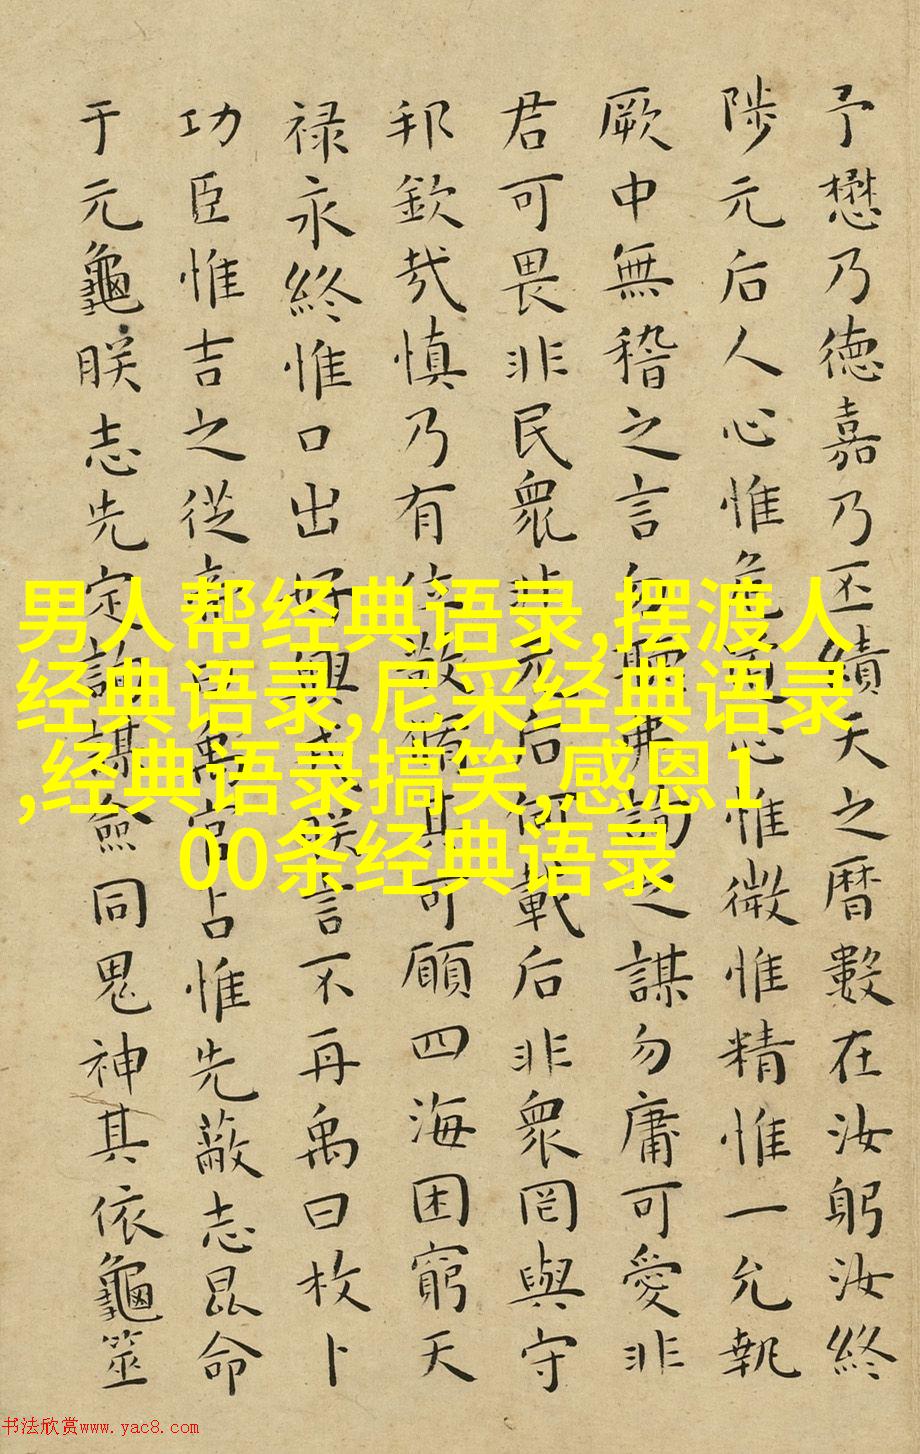 予懋乃徳嘉乃丕績天之暦數在汝躬汝終
陟元后人心惟危道心惟微惟精惟一允執
厥中無稽之言勿聽弗詢之謀勿庸可愛非
君可畏非民衆非元后何載后非衆罔與守
邦欽哉慎乃有位敬脩其可願四海困窮天
禄永終惟口出好興戎朕言不再禹曰枚卜
功臣惟吉之從帝曰禹官占惟先蔽志昆命
于元龜朕志先定詢謀僉同鬼神其依龜筮
男人帮经典语录,摆渡人
经典语录,尼采经典语录
,经典语录搞笑,感恩1
00条经典语录
书法欣赏www.yac8.com